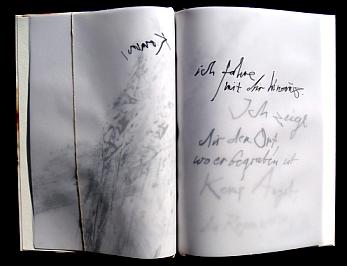 Komm!
ich fahre
mit dir hinaus.
Ich zeige
dir den Ort,
wo er begraben ist
Keine Angst